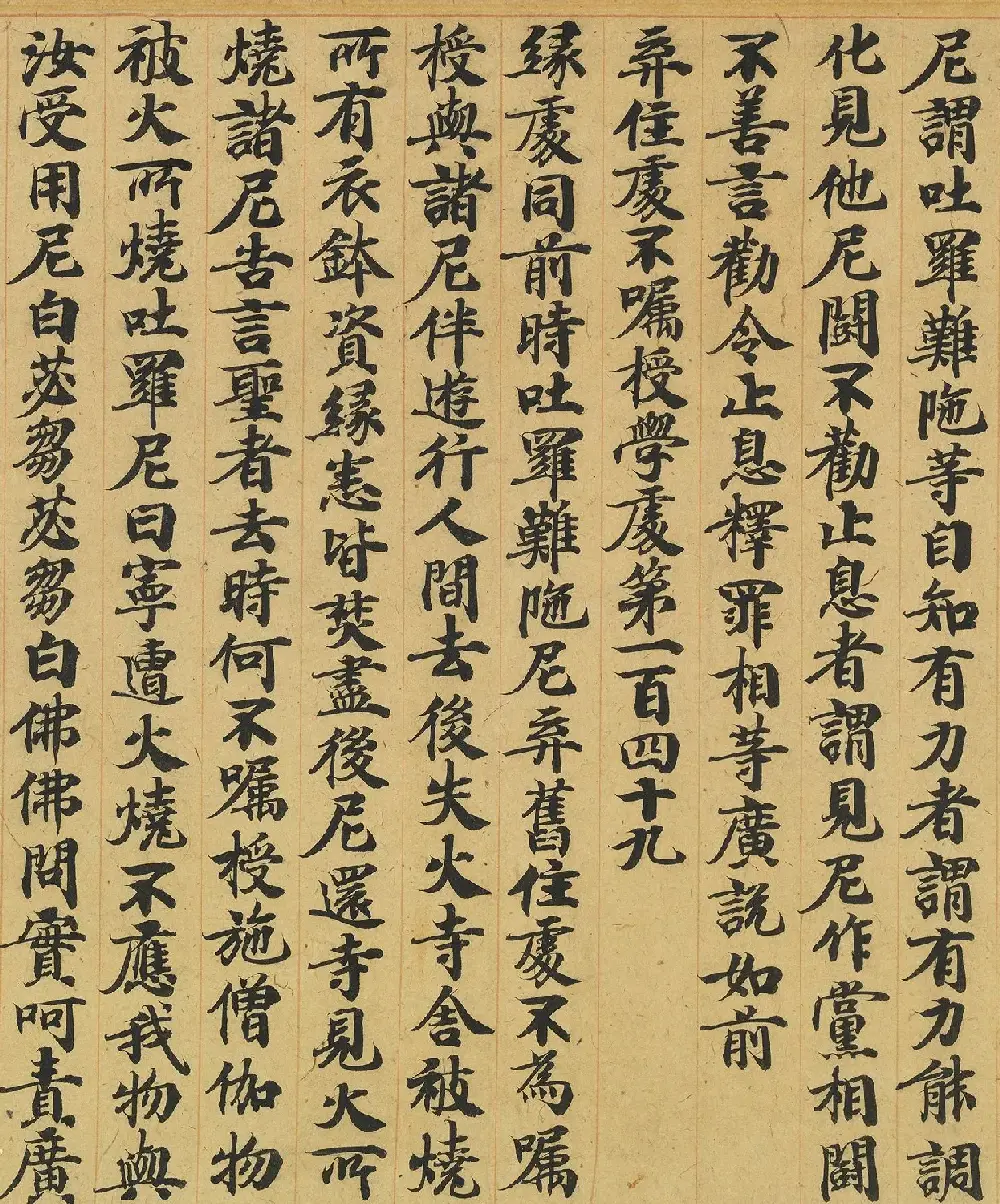 尼謂吐羅難陁等自知有力者謂有力能調
化見他尼鬪不勸止息者謂見尼作黨相鬪
不善言勸令止息釋罪相等廣說如前
弃住處不囑授學處第一百四十九
緣處同前時吐羅難陁尼弃舊住處不為囑
授與諸尼伴遊行人間去後失火寺舍被燒
所有衣鉢資緣悉皆焚盡後尼還寺見火所
燒諸尼告言聖者去時何不囑授施僧伽物
被火所燒吐羅尼曰寧遭火燒不應我物與
汝受用尼白苾芻苾芻白佛佛問實呵責廣